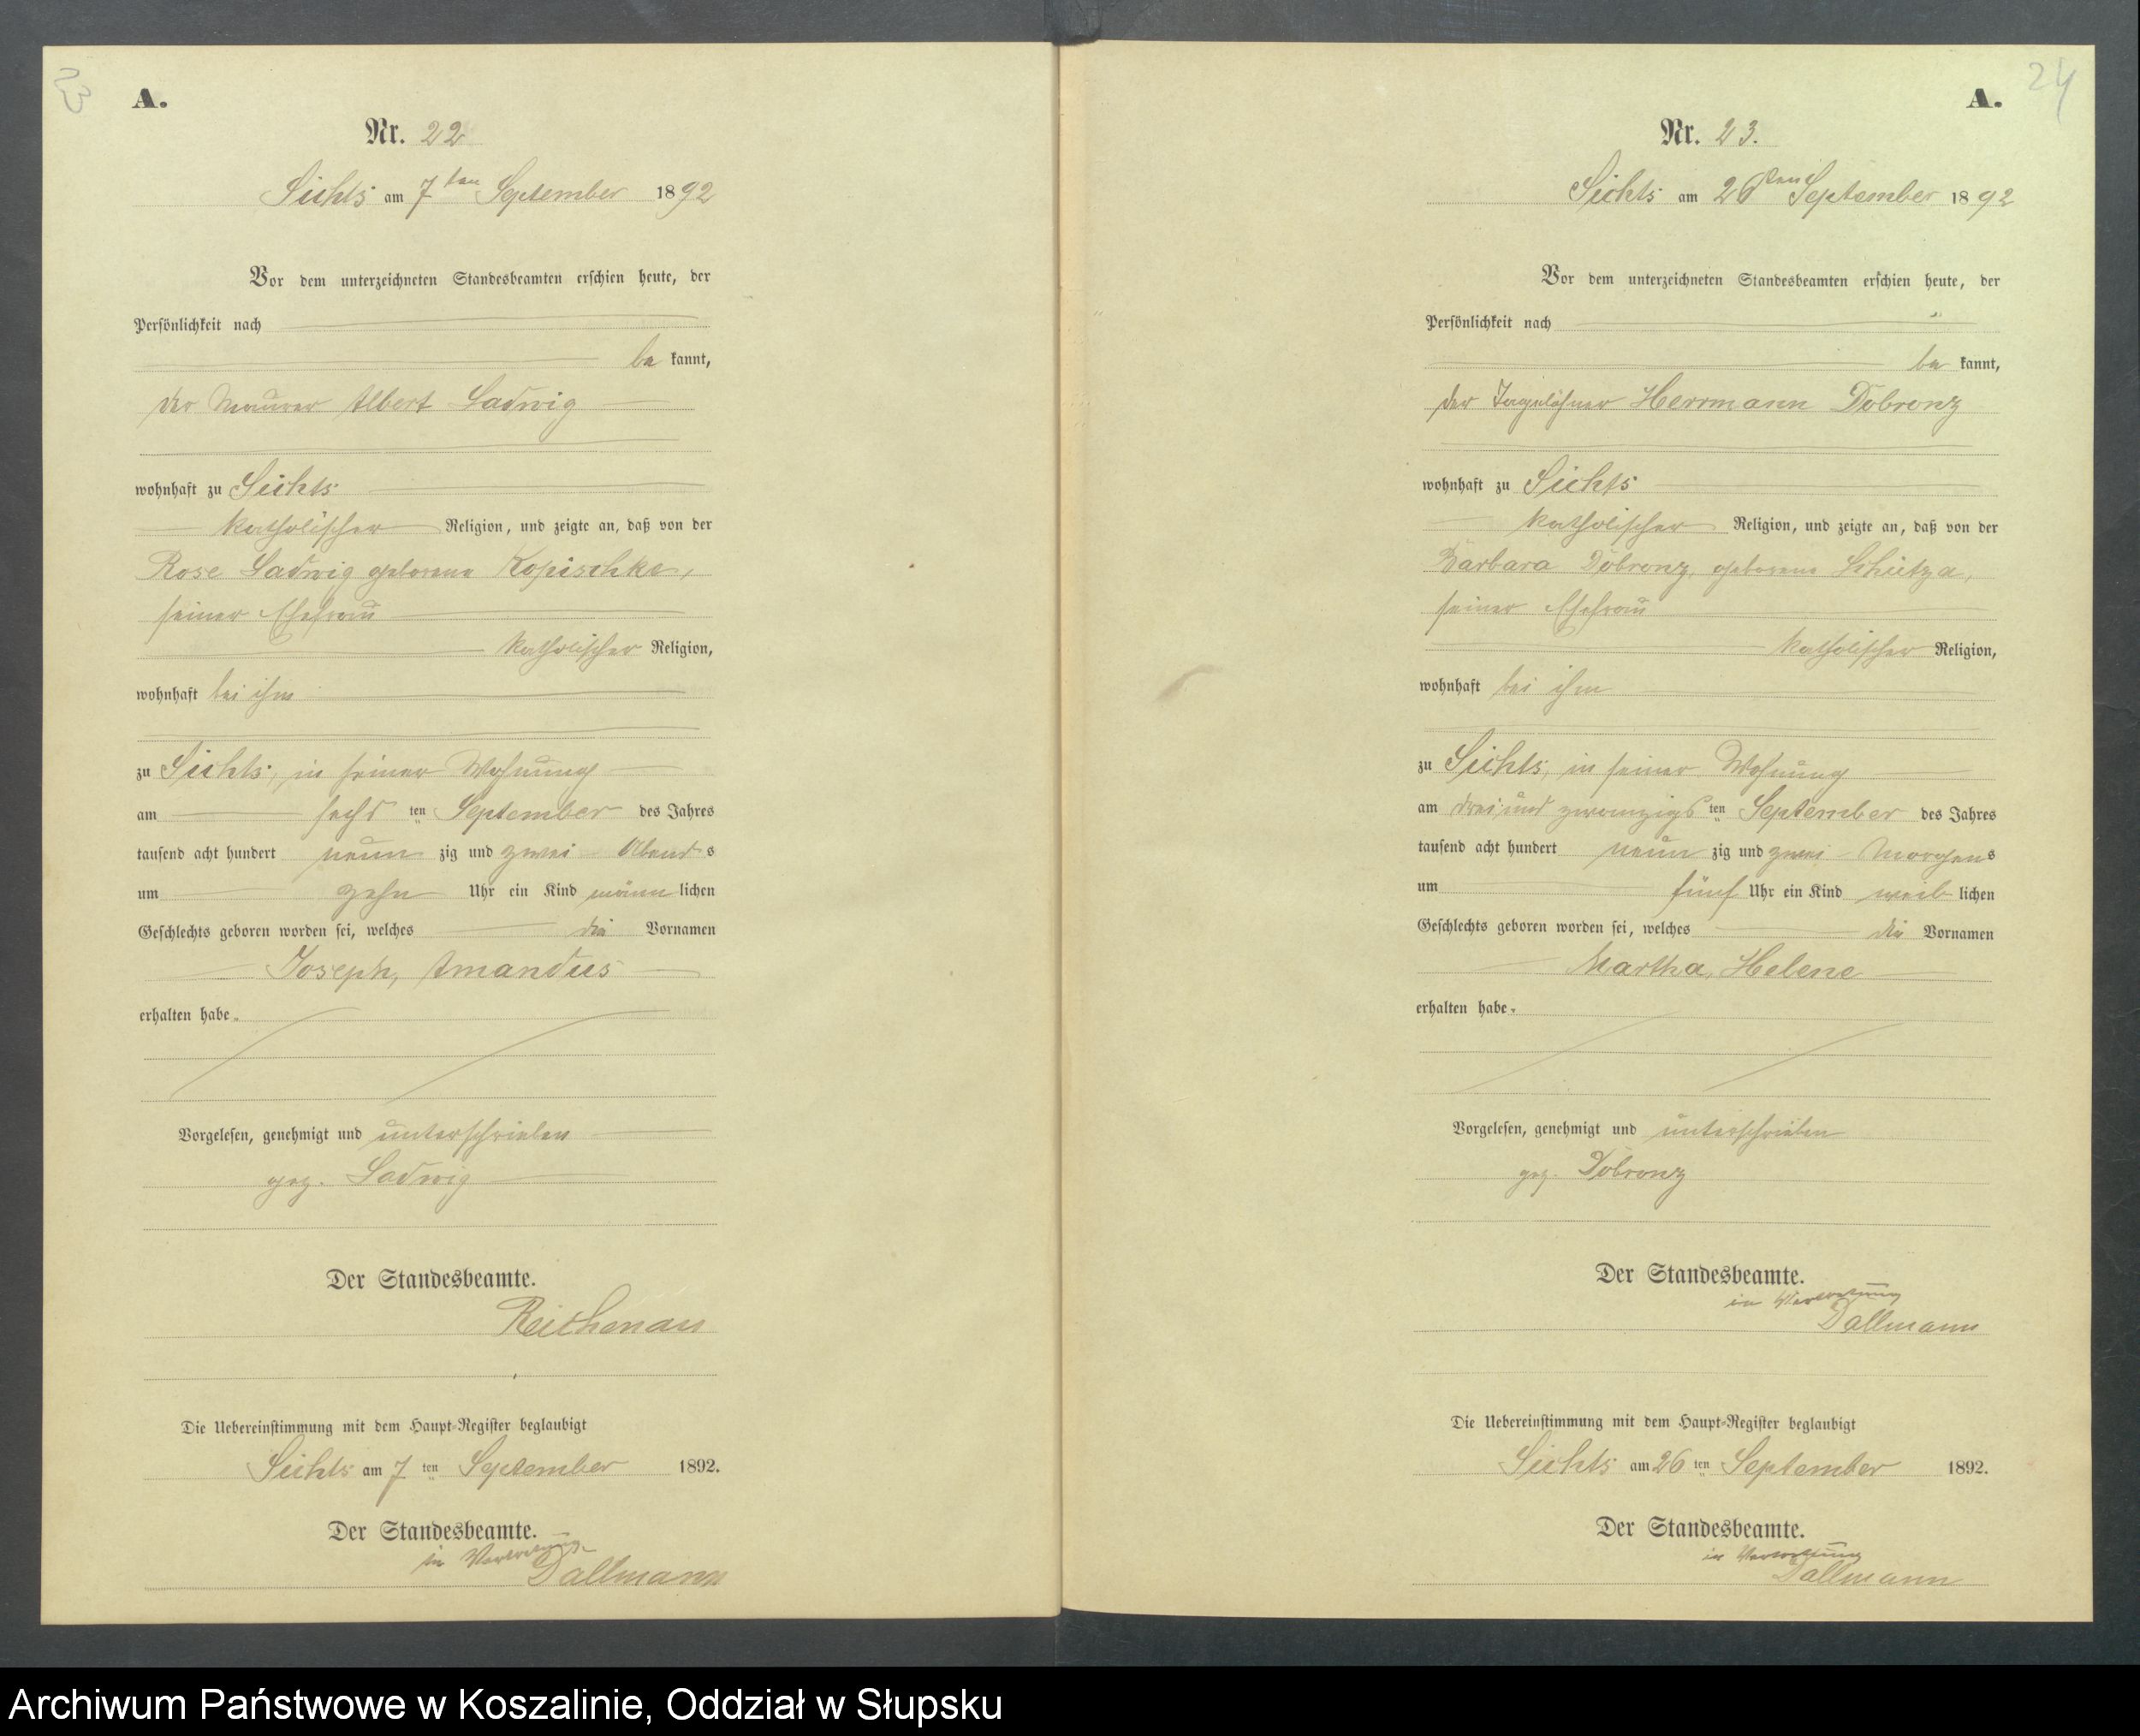 23
A.
Nr. 22
Sichts am 7ten September 1892
Vor dem unterzeichneten Standesbeamten erschien heute, der
Persönlichkeit nach
be kannt,
der Maurer Albert Ladwig
wohnhaft zu Sichts
katholischer Religion, und zeigte an, daß von der
Rose Ladwig geborene Kopischke,
seiner Ehefrau
katholischer Religion,
wohnhaft bei ihm
zu Sichts, in seiner Wohnung
am sechs ten September des Jahres
tausend acht hundert neun zig und zwei Abend s
um zehn Uhr ein Kind männ lichen
Geschlechts geboren worden sei, welches die Vornamen
Joseph, Amandus
erhalten habe.
Vorgelesen, genehmigt und unterschrieben
gez. Ladwig
Der Standesbeamte.
Reichenau
Die Uebereinstimmung mit dem Haupt-Register beglaubigt
Sichts am 7 ten September 1892.
Der Standesbeamte.
in Vertretung
Dallmann
24
A.
Nr. 23.
Sichts am 26ten September 1892
Vor dem unterzeichneten Standesbeamten erschien heute, der
Persönlichkeit nach
be kannt,
der Tagelöhner Herrmann Dobronz
wohnhaft zu Sichts
katholischer Religion, und zeigte an, daß von der
Barbara Dobronz, geborene Schütza,
seiner Ehefrau
katholischer Religion,
wohnhaft bei ihm
zu Sichts, in seiner Wohnung
am drei und zwanzigs ten September des Jahres
tausend acht hundert neun zig und zwei Morgen s
um fünf Uhr ein Kind weib lichen
Geschlechts geboren worden sei, welches die Vornamen
Martha, Helene
erhalten habe.
Vorgelesen, genehmigt und unterschrieben
gez. Dobronz
Der Standesbeamte.
in Vertretung
Dallmann
Die Uebereinstimmung mit dem Haupt-Register beglaubigt
Sichts am 26 ten September 1892.
Der Standesbeamte.
in Vertretung
Dallmann
Archiwum Państwowe w Koszalinie, Oddział w Słupsku